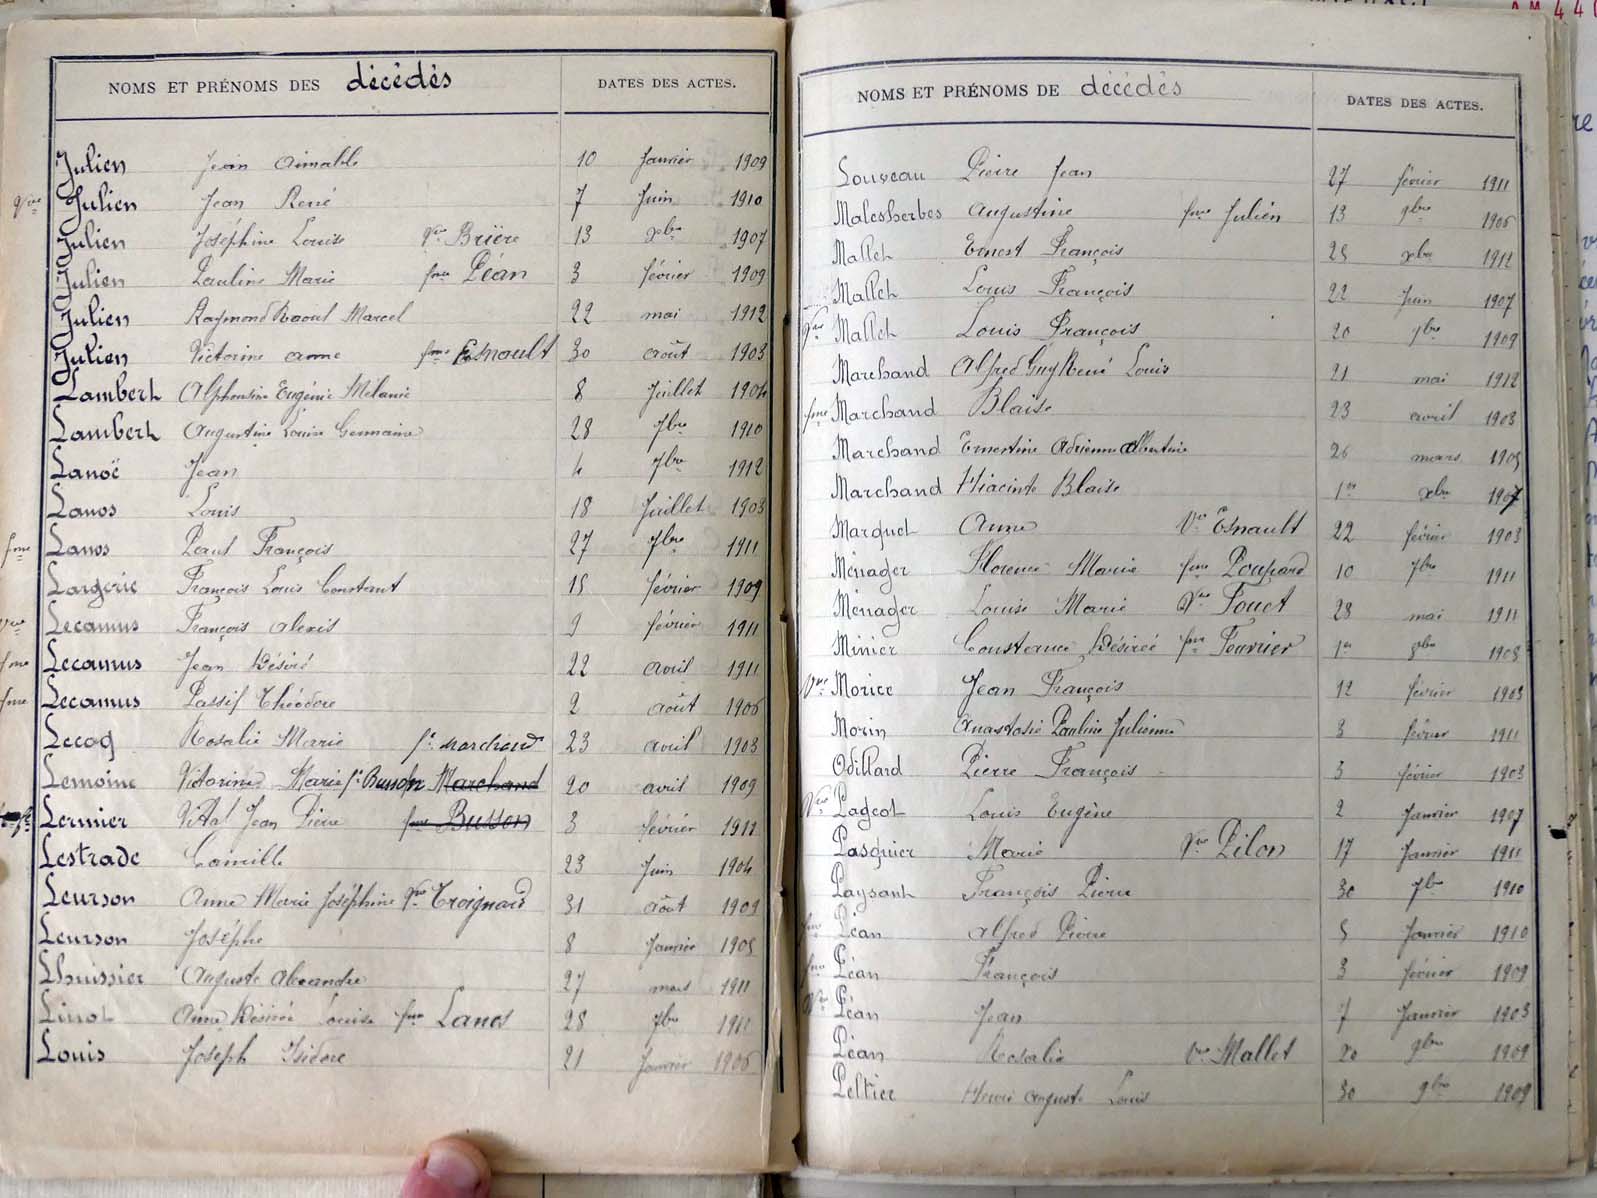 NOMS ET PRÉNOMS DES décédés DATES DES ACTES.
Julien Jean Aimable 10 Janvier 1909
Vve Julien Jean René 7 Juin 1910
Julien Joséphine Louise Vve Brière 13 xbre 1907
Julien Pauline Marie fme Péan 3 février 1909
Julien Raymond Raoul Marcel 22 mai 1912
Julien Victorine Anne fme Esnault 30 août 1903
Lambert Alphonsine Eugénie Mélanie 8 Juillet 1904
Lambert Augustine Louise Germaine 28 7bre 1910
Lanoë Jean 4 7bre 1912
Lanos Louis 18 Juillet 1903
fme Lanos Paul François 27 7bre 1911
Largerie François Louis Constant 15 février 1909
Vve Lecamus François Alexis 9 février 1911
fme Lecamus Jean Désiré 22 avril 1911
fme Lecamus Passif Théodore 2 août 1906
Lecoq Rosalie Marie fe Marchand 23 avril 1903
Lemoine Victorine Marie fe Busson Marchand 20 avril 1909
Lermier Vital Jean Pierre fme Busson 3 février 1911
Lestrade Camille 23 Juin 1904
Leurson Anne Marie Joséphine Vve Troignard 31 août 1909
Leurson Josèphe 8 Janvier 1905
Lhuissier Auguste Alexandre 27 mars 1911
Linot Anne Désirée Louise fme Lanos 28 7bre 1911
Louis Joseph Isidore 21 Janvier 1906
NOMS ET PRÉNOMS DE décédés DATES DES ACTES.
Louveau Pierre Jean 27 février 1911
Malesherbes Augustine fme Julien 13 9bre 1906
Mallet Ernest François 25 xbre 1912
Mallet Louis François 22 Juin 1907
Vve Mallet Louis François 20 7bre 1909
Marchand Alfred Guy René Louis 21 mai 1912
fme Marchand Blaise 23 avril 1903
Marchand Ernestine Adrienne Albertine 26 mars 1905
Marchand Hiacinte Blaise 1er xbre 1907
Marquet Anne Ve Esnault 22 février 1903
Ménager Florence Marie fme Poupard 10 7bre 1911
Ménager Louise Marie Vve Fouet 28 mai 1911
Minier Constance Désirée fme Fourrier 1er 8bre 1908
Vve Morice Jean François 12 février 1903
Morin Anastasie Pauline Julienne 3 février 1911
Odillard Pierre François 3 février 1903
Vve Pageot Louis Eugène 2 Janvier 1907
Pasquier Marie Vve Pilon 17 Janvier 1911
Paysant François Pierre 30 7bre 1910
fme Péan Alfred Pierre 5 Janvier 1910
fme Péan François 3 février 1909
Vve Péan Jean 7 Janvier 1903
Péan Rosalie Vve Mallet 20 9bre 1909
Peltier Henri Auguste Louis 30 9bre 1909